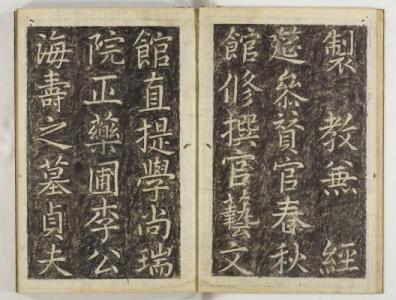 製教兼經
筵參贊官春秋
館修撰官藝文
館直提學尚瑞
院正藥圃李公
海壽之墓貞夫